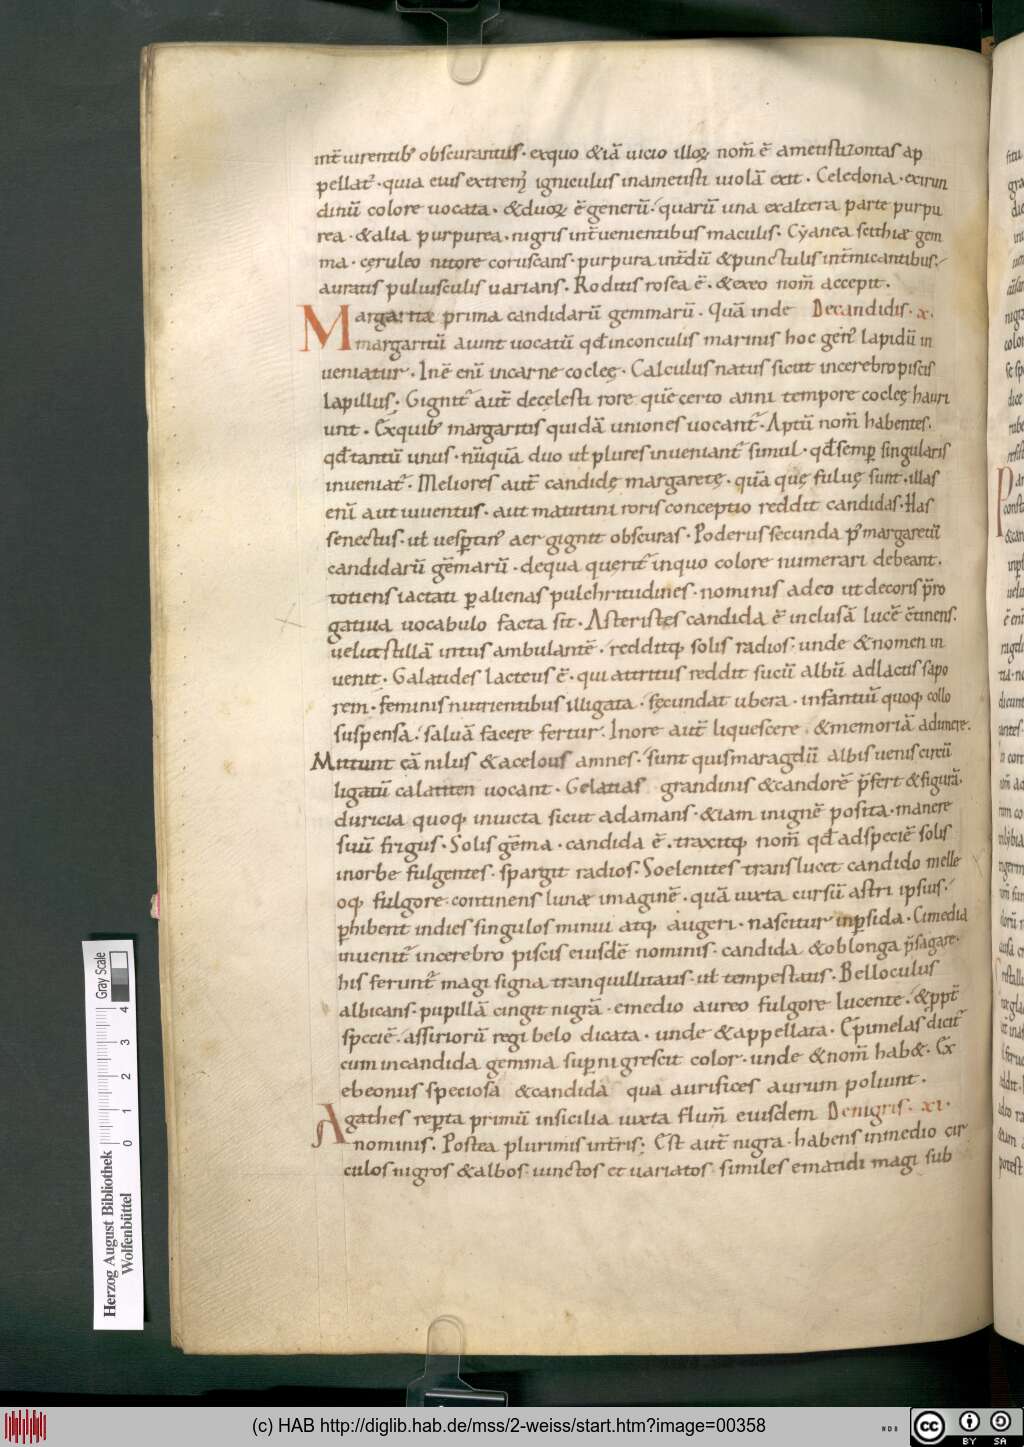 int̄ uirentib; obscurantus · exquo &iā uicio illoꝝ nom̄ ē ametistizontas ap
pellat᷑ · quia eius extremꝰ igniculus inametisti uiolā exit · Celedona · exirun
dinū colore uocata · &duoꝝ ē generū · quarū una exaltera parte purpu
rea · &alia purpurea · nigris int̄uenientibus maculis · Cyanea scithiæ gem
ma · cęruleo nitore coruscans · purpura int̄dū &punctulis int̄micantibus ·
auratis puluisculis uarians · Roditis rosea ē · &exeo nom̄ accepit ·
Margaritæ prima candidarū gemmarū · Quā inde Decandidis · x ·
margaritū aiunt uocatū qđ inconculis marinis hoc gen᷑ lapidū in
ueniatur · Inē enī incarne cocleę · Calculus natus sicut incerebro piscis
lapillus · Gignit᷑ aut̄ decęlesti rore quē certo anni tempore cocleę hauri
unt · Exquib; margaritis quidā uniones uocant᷑ · Aptū nom̄ habentes ·
qđ tantū unus · nūquā duo uł plures inueniant᷑ simul · qđ semꝑ singularis
inueniat᷑ · Meliores aut̄ candidę margaretę · quā quę fuluę sunt · illas
enī aut iuuentus · aut matutini roris conceptio reddit candidas · Has
senectus · uł uesꝑtinꝰ aer gignit obscuras · Poderus secunda pꝰ margaretū
candidarū gēmarū · dequa querit᷑ inquo colore numerari debeant ·
totiens iactati ꝑ alienas pulchritudines · nominis adeo ut decoris p̄ro
gatiua uocabulo facta sit · Asterites candida ē inclusā lucē c̄tinens ·
uelut stillā intus ambulantē · redditqꝫ solis radios · unde &nomen in
uenit · Galatides lacteus ē · qui attritus reddit sucū albū adlactis sapo
rem · feminis nutrientibus illigata · fęcundat ubera · infantiū quoqꝫ collo
suspensa · saluā facere fertur · Inore aut̄ liquescere · &memoriā adimere ·
Mittunt eā nilus &acelous amnes · sunt quismaragdū albis uenis circū
ligatū calatiten uocant · Gelatias grandinis &candorē p̄fert &figurā ·
duricia quoqꝫ inuicta sicut adamans · &iam inignē posita · manere
suū frigus · Solis gēma · candida ē · traxitqꝫ nom̄ qđ adspeciē solis
inorbe fulgentes · spargit radios · Soelenites translucet candido melle
oqꝫ fulgore · continens lunæ imaginē · quā iuxta cursū astri ipsius ·
ꝑhibent indies singulos minui atqꝫ augeri · nascitur inꝑsida · Cimedia
inuenit᷑ incerebro piscis eiusdē nominis · candida &oblonga p̄sagare ·
his ferunt᷑ magi signa tranquillitatis · uł tempestatis · Belloculus
albicans · pupillā cingit nigrā · emedio aureo fulgore lucente · &ꝓpt̄
speciē · assiriorū regi belo dicata · unde &appellata · Epimelas dicit᷑
cum incandida gemma suꝑnigrescit color · unde &nom̄ hab& · Ex
ebeonus speciosa &candida qua aurifices aurum poliunt ·
Agathes reꝑta primū insicilia iuxta flum̄ eiusdem Denigris · xi ·
nominis · Postea plurimis int̄ris; Est aut̄ nigra · habens inmedio cir
culos nigros &albos · iunctos et uariatos · similes ematidi magi sub
Herzog August Bibliothek
Wolfenbüttel
0 1 2 3 4
Gray Scale
(c) HAB http://diglib.hab.de/mss/2-weiss/start.htm?image=00358
cc BY SA